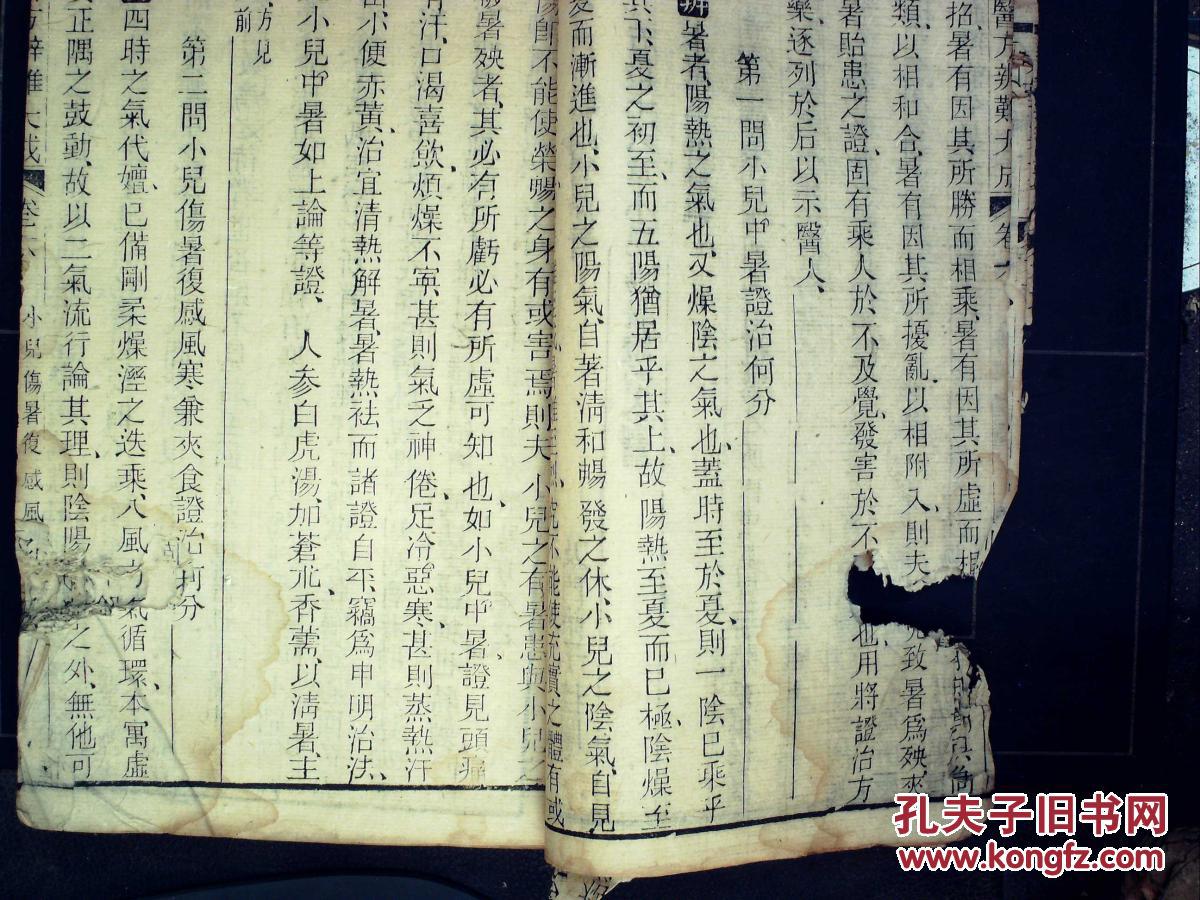 醫方辨難大成
卷六
招、暑有因其所勝而相乘、暑有因其所虛而相
類、以相和合、暑有因其所擾亂、以相附入、則夫 致暑爲殃、來
暑貽患之證、固有乘人於不及覺、發害於不 也、用將證治方
藥、逐列於后、以示醫人、
第一問小兒中暑證治何分
辨暑者、陽熱之氣也、又燥陰之氣也、蓋時至於夏、則一陰已乘乎
其下、夏之初至、而五陽猶居乎其上、故陽熱至夏而已極、陰燥至
夏而漸進也、小兒之陽氣、自著淸和暢發之休、小兒之陰氣、自見
之體有或
陽卽不能使榮暢之身有或害焉、則夫小兒之有暑患與小兒之
暑殃者、其必有所虧必有所虛可知也、如小兒中暑、證見頭痛
有汗、口渴喜飲、煩燥不寧、甚則氣乏神倦、足冷惡寒、甚則蒸熱汗
出、小便赤黃、治宜清熱解暑、暑熱祛而諸證自平、竊爲申明治法、
小兒中暑如上論等證、 人參白虎湯、加蒼朮、香薷、以清暑、主
方見
前
第二問小兒傷暑復感風寒兼夾食證治何分
四時之氣代嬗、已備剛柔燥溼之迭乘、八風之氣循環、本寓虛
正隅之鼓動、故以二氣流行論其理、則陰陽 之外、無他可
卷六
小兒傷暑復感風
孔夫子旧书网
www.kongfz.com